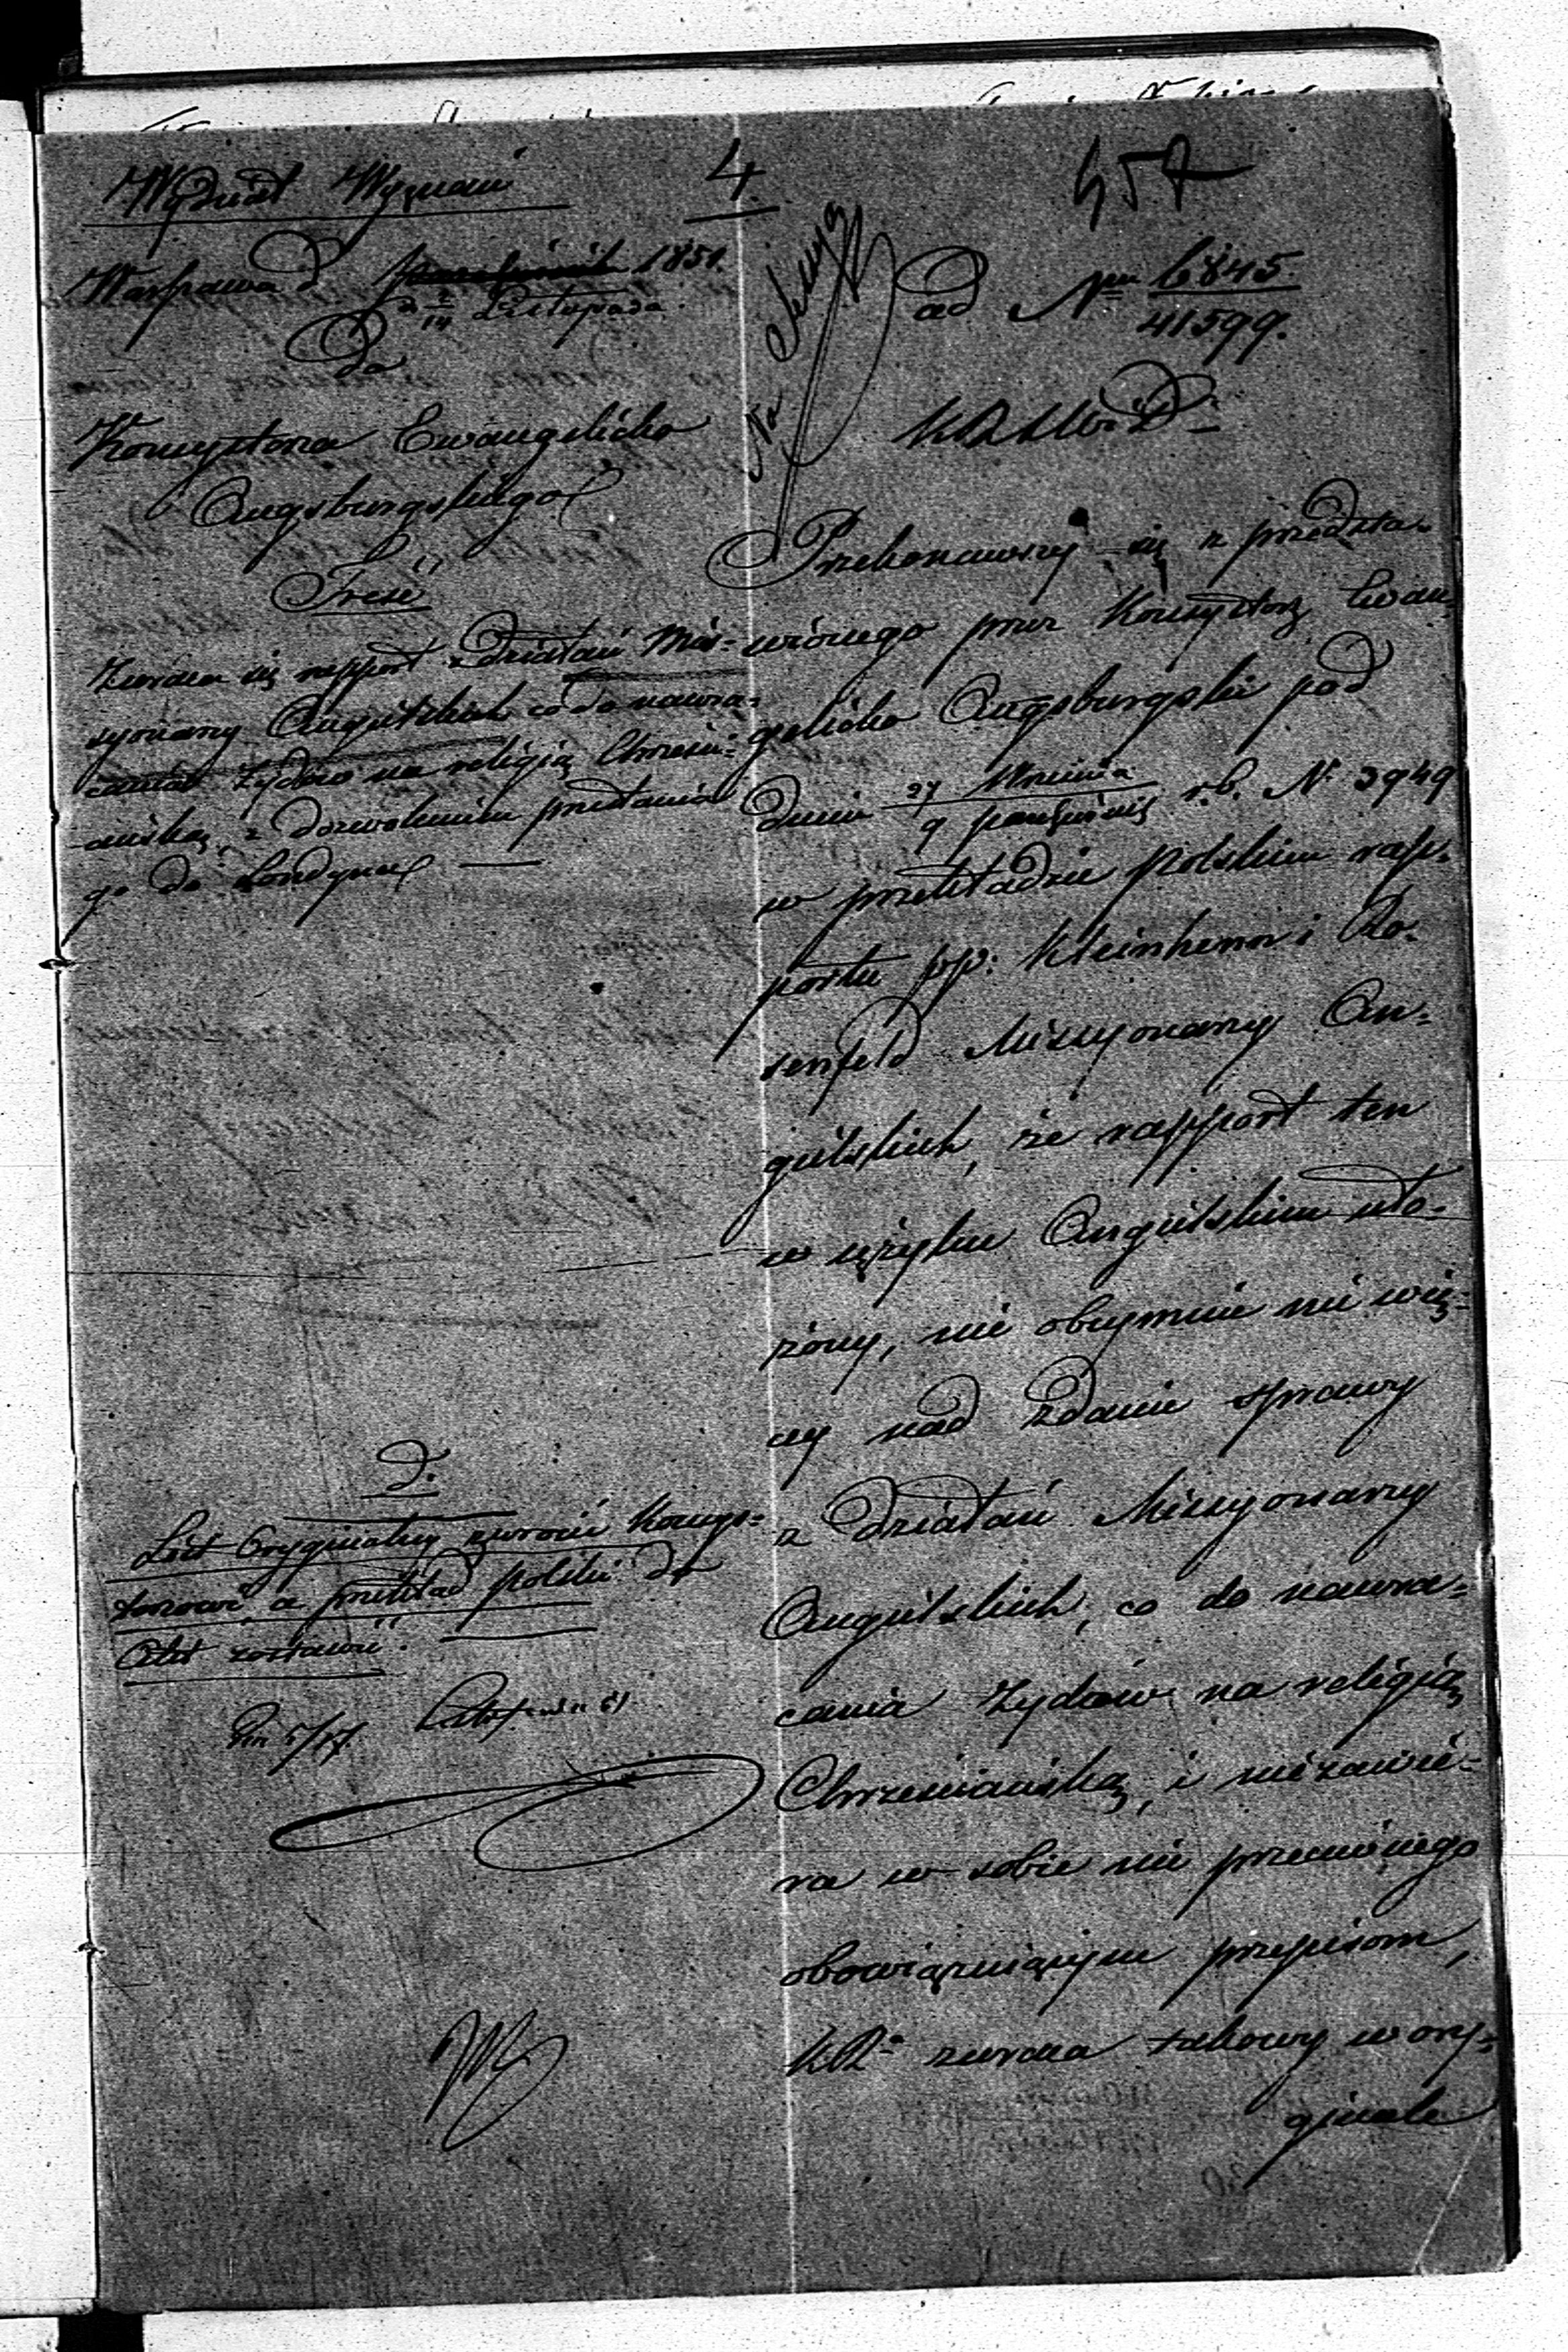 Wydział Wyznań
4.
457
Warszawa d. 1851.
d. 2/14 Listopada.
ad Nrm 6845/41599.
Do
Konsystorza Ewangelicko
Augsburgskiego
K R S W i D:
Treść
Zwraca się rapport z działań Mis-
syonarzy Angielskich co do nawra-
cania Żydów na religią Chrześci-
ańską, z dozwoleniem przesłania
go do Londynu
Przekonawszy się z przedsta-
wionego przez Konsystorz Ewan
gelicko Augsburgski pod
dniem 27 Września / 9 Październ: r.b. Nr 3949
w przekładzie polskim rap-
portu pp: Kleinhenn i Ro-
senfeld Missyonarzy An-
gielskich, że rapport ten
w języku Angielskim uło-
żony, nie obeymuie nic wię-
cey nad zdanie sprawy
z działań Missyonarzy
Angielskich, co do nawra-
cania Żydów na religią
Chrześciańską, i niezawie-
ra w sobie nic przeciwnego
obowiązuiącym przepisom,
KR. zwraca takowy w ory-
ginale
d.
List Oryginalny zwrócić Konsys-
torzowi, a przekład polski do
Akt zostawić.